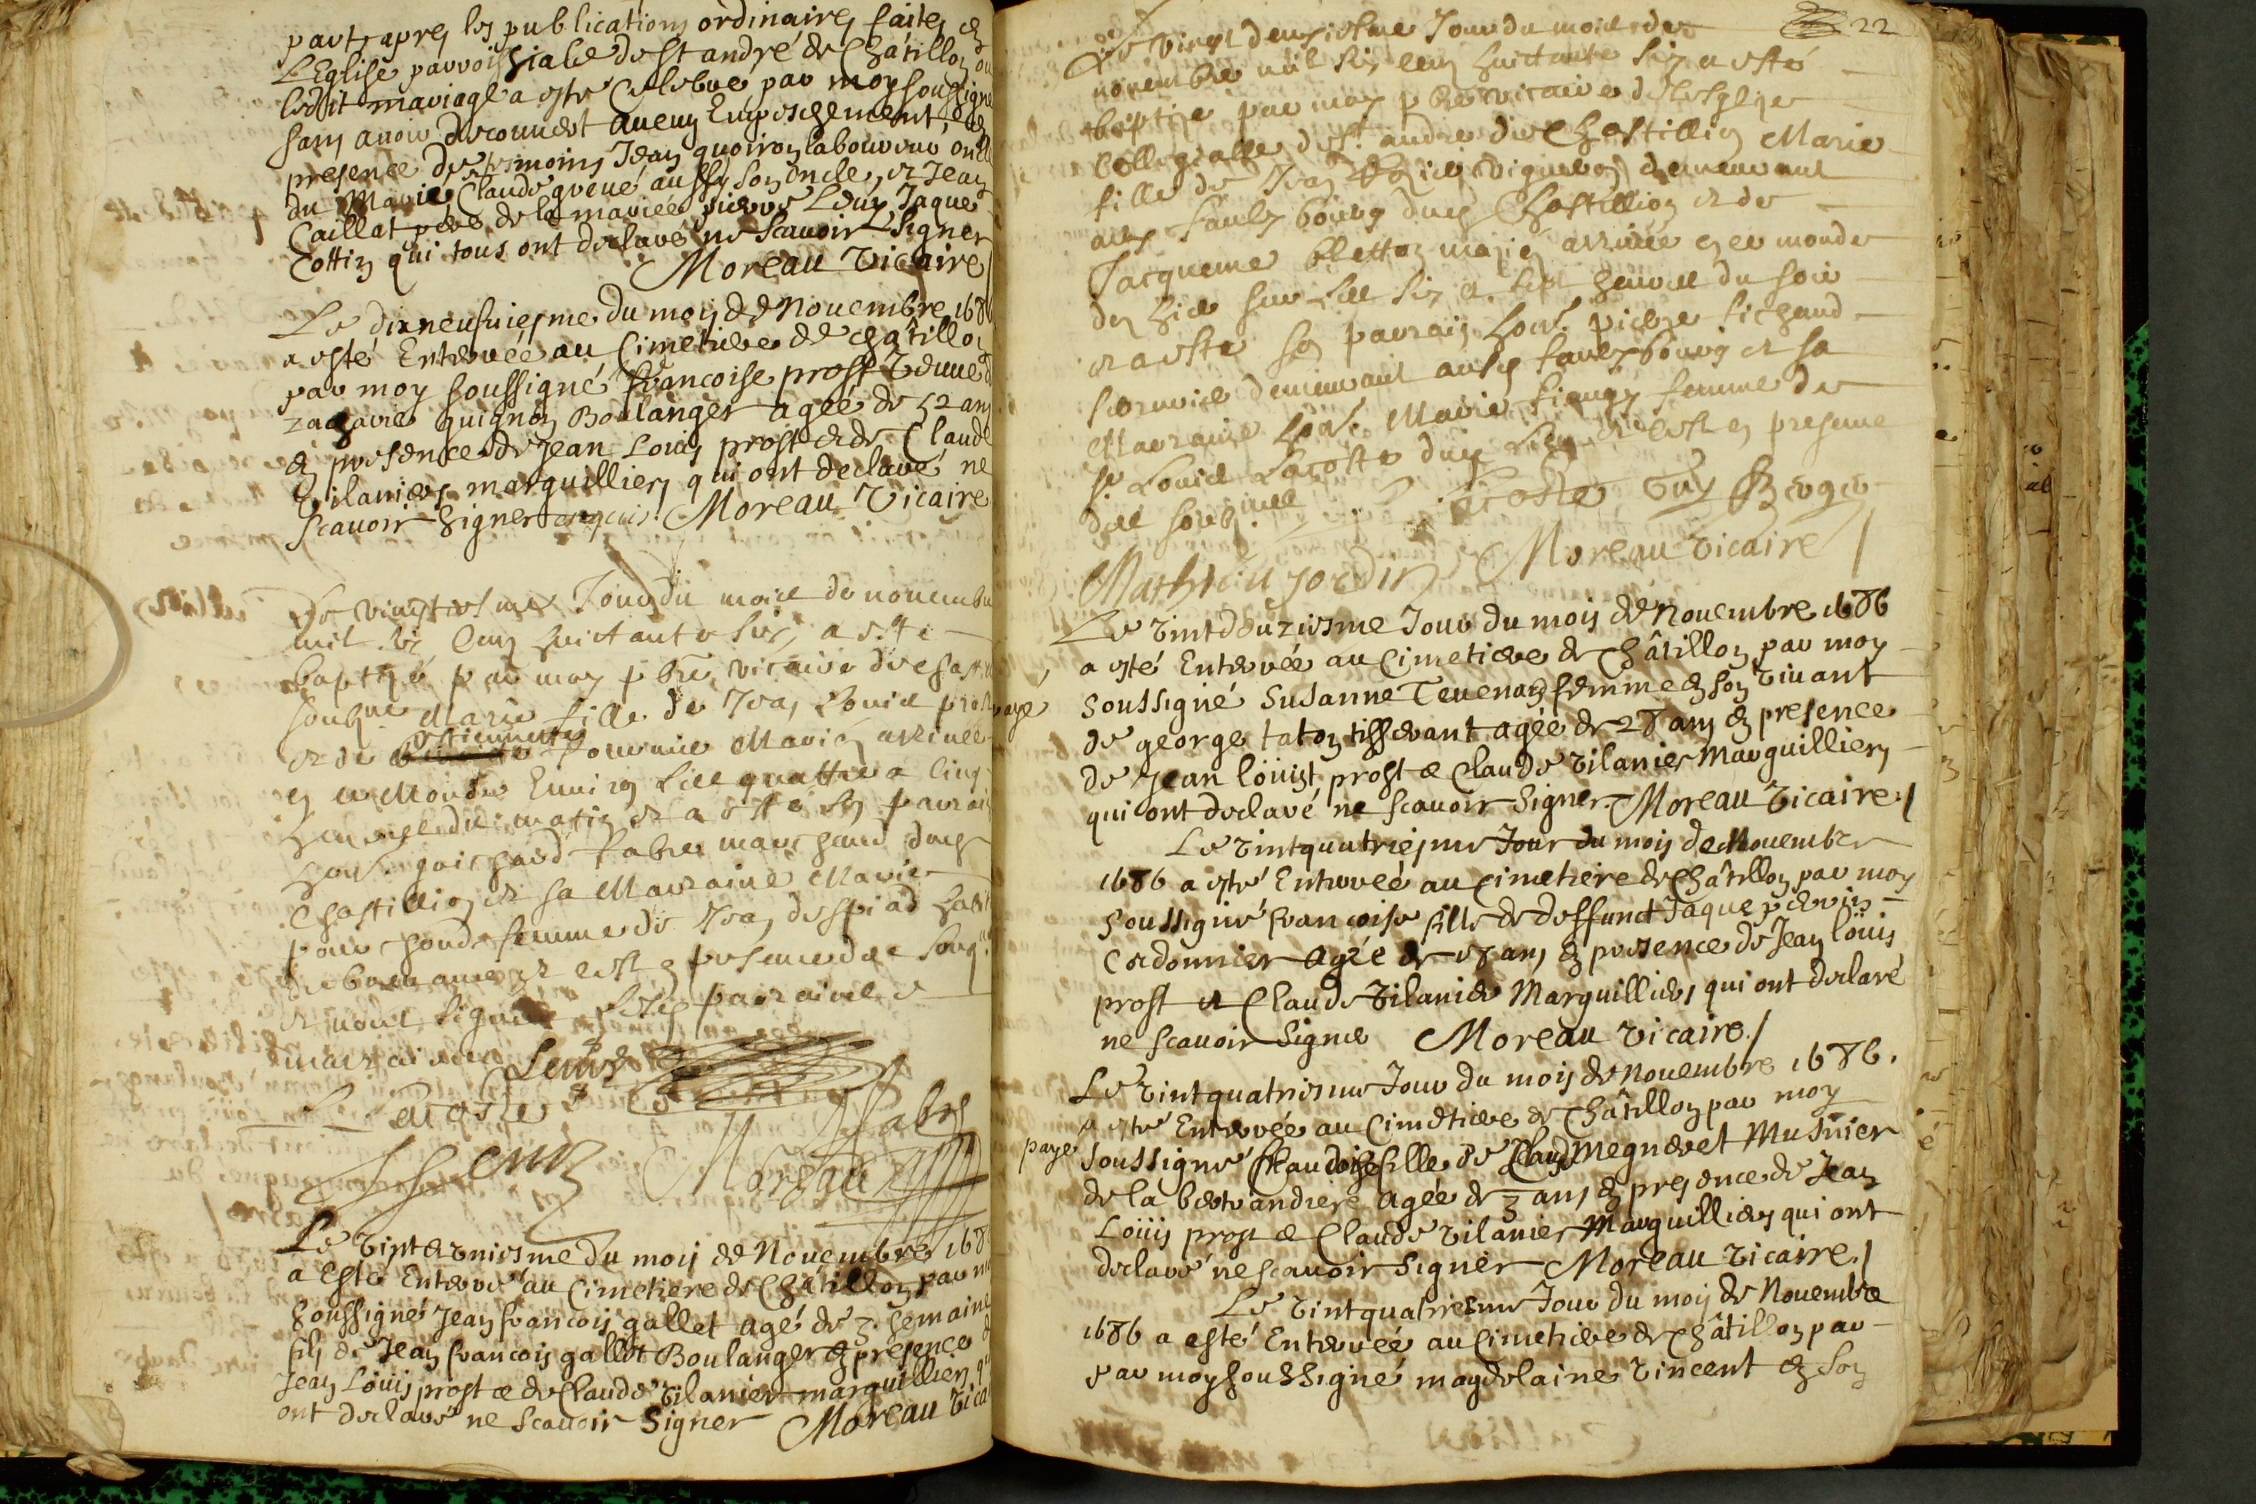 part, apres les publications ordinaires faites en
L'Eglise parroissiale de St andré de Châtillon ou
ledit mariage a esté Celebré par moy soussigné
sans avoir decouvert aucun Empeschement, en
presence de tesmoins Jean quoiron laboureur oncle
du Marié, Claude queue aussy son oncle, et Jean
Caillat pere de la mariée pierre Jaque
Cottin qui tous ont declaré ne scauoir Signer
Moreau Vicaire
Le dixneufuiesme du mois de Nouembre 168
a esté Enterrée au Cimetiere de châtillon
par moy soussigné francoise prost veuue de
zacharie guignon Boulanger agée de 52 ans
en presence de Jean Louis prost et de Claude
Vilanier marguilliers qui ont declaré ne
scauoir Signer Moreau Vicaire
Le vingtiesme Jour du mois de nouembre
mil six Cens huictante six, a esté
baptisé par moy pbre vicaire de
soubsigné Marie fille de Jean Louis prost
et de estiennette Mariés arrivée
en ce Monde Enuiron les quattre a Cinq
heures du matin et a esté son parrain
hon. fabre marchand dudit
Chastillion et sa Marraine Marie
femme de Jean
et c'est en presence des soubs.
et nous signés lesdits parrain et
marraine
Lacoste Fabre
Moreau
Le vint et vniesme du mois de Nouembre 168
a Esté Enterré au Cimetiere de Châtillon par moy
soussigné Jean francois gallet agé de 3. semaines
fils de Jean francois gallet Boulanger en presence de
Jean Louis prost et de Claude Vilanier marguilliers qui
ont declaré ne scauoir Signer Moreau Vicai
22
Le vingt deuxiesme Jour du mois de
nouembre mil six cens huictante six a esté
baptize par moy pbre vicaire de l'esglize
Collegialle de St. andre de Chastillion Marie
fille de Jean vigneron demeurant
aux faulxbourg dudit Chastillion et de
Jacqueme bletton mariés arrivée en ce monde
du hier sur les six a sept heures du soir
et a esté son parrain hon. pierre sichaud
demeurant audit faulxbourg et sa
Marraine hon. Marie femme de
Sr. Louis Lacoste dudit lieu et c'est en presence
des soubsignés
Lacoste Guy Roger
Mathieu Jordin Moreau vicaire
Le vint deuziesme Jour du mois de Nouembre 1686
a esté Enterrée au Cimetiere de Châtillon par moy
payé
soussigné Susanne Teuenan femme en son viuant
de george taton tisserant agée de 28 ans en presence
de Jean loüist prost et Claude Vilanier Marguilliers
qui ont declaré ne scauoir Signer. Moreau Vicaire.
Le vintquatriesme Jour du mois de Nouembre
1686 a esté Enterreé au Cimetiere de Châtillon par moy
soussigné francoise fille de deffunct Jaque
Cordonnier agée de ans en presence de Jean loüis
prost et Claude Vilanier Marguilliers qui ont declaré
ne scauoir Signer Moreau vicaire.
Le vintquatriesme Jour du mois de Nouembre 1686.
a esté Enterrée au Cimetiere de Châtillon par moy
payé
soussigné Claudoise fille de Claude Megneret Musnier
de la bertrandiere agée de 3 ans en presence de Jean
Loüis prost et Claude Vilanier Marguilliers qui ont
declaré ne scauoir Signer Moreau Vicaire.
Le vintquatriesme Jour du mois de Nouembre
1686 a esté Enterrée au Cimetiere de Châtillon par
par moy soussigné magdelaine Vincent en son